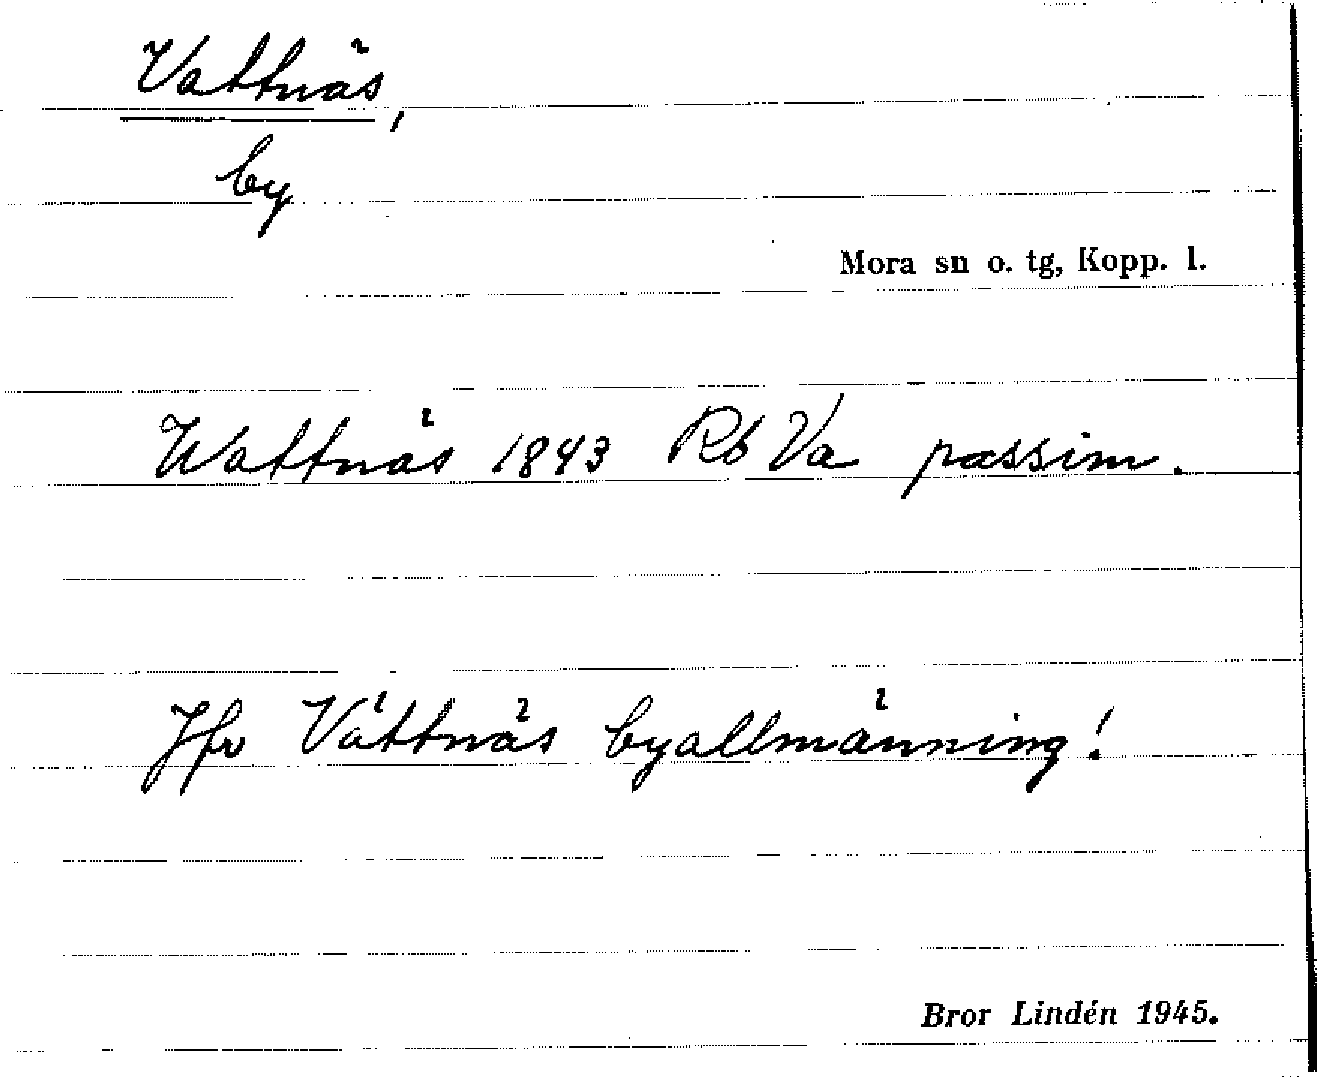 Vattnäs,
by
Mora sn o. tg, Kopp. l.
Wattnäs 1843 Rb Va passim.
Jfr Vattnäs byallmänning!
Bror Lindén 1945.